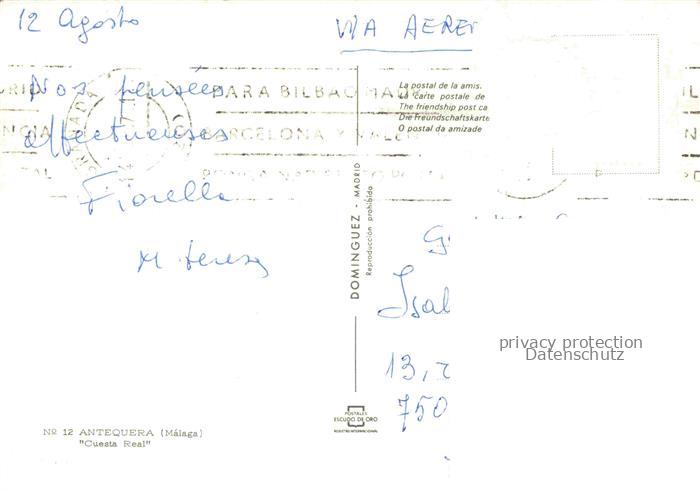 12 Agosto
VIA AEREA
Nos pensées
affectueuses
Fiorella
M. teresa
PARA BILBAO MADR
BARCELONA Y VALEN
La postal de la amis
La carte postale de
The friendship post ca
Die Freundschaftskarte
O postal da amizade
DOMINGUEZ - MADRID
Reproducción prohibida
Isal
13,
750
privacy protection
Datenschutz
POSTALES
ESCUDO DE ORO
REGISTRO INTERNACIONAL
Nº 12 ANTEQUERA (Málaga)
"Cuesta Real"